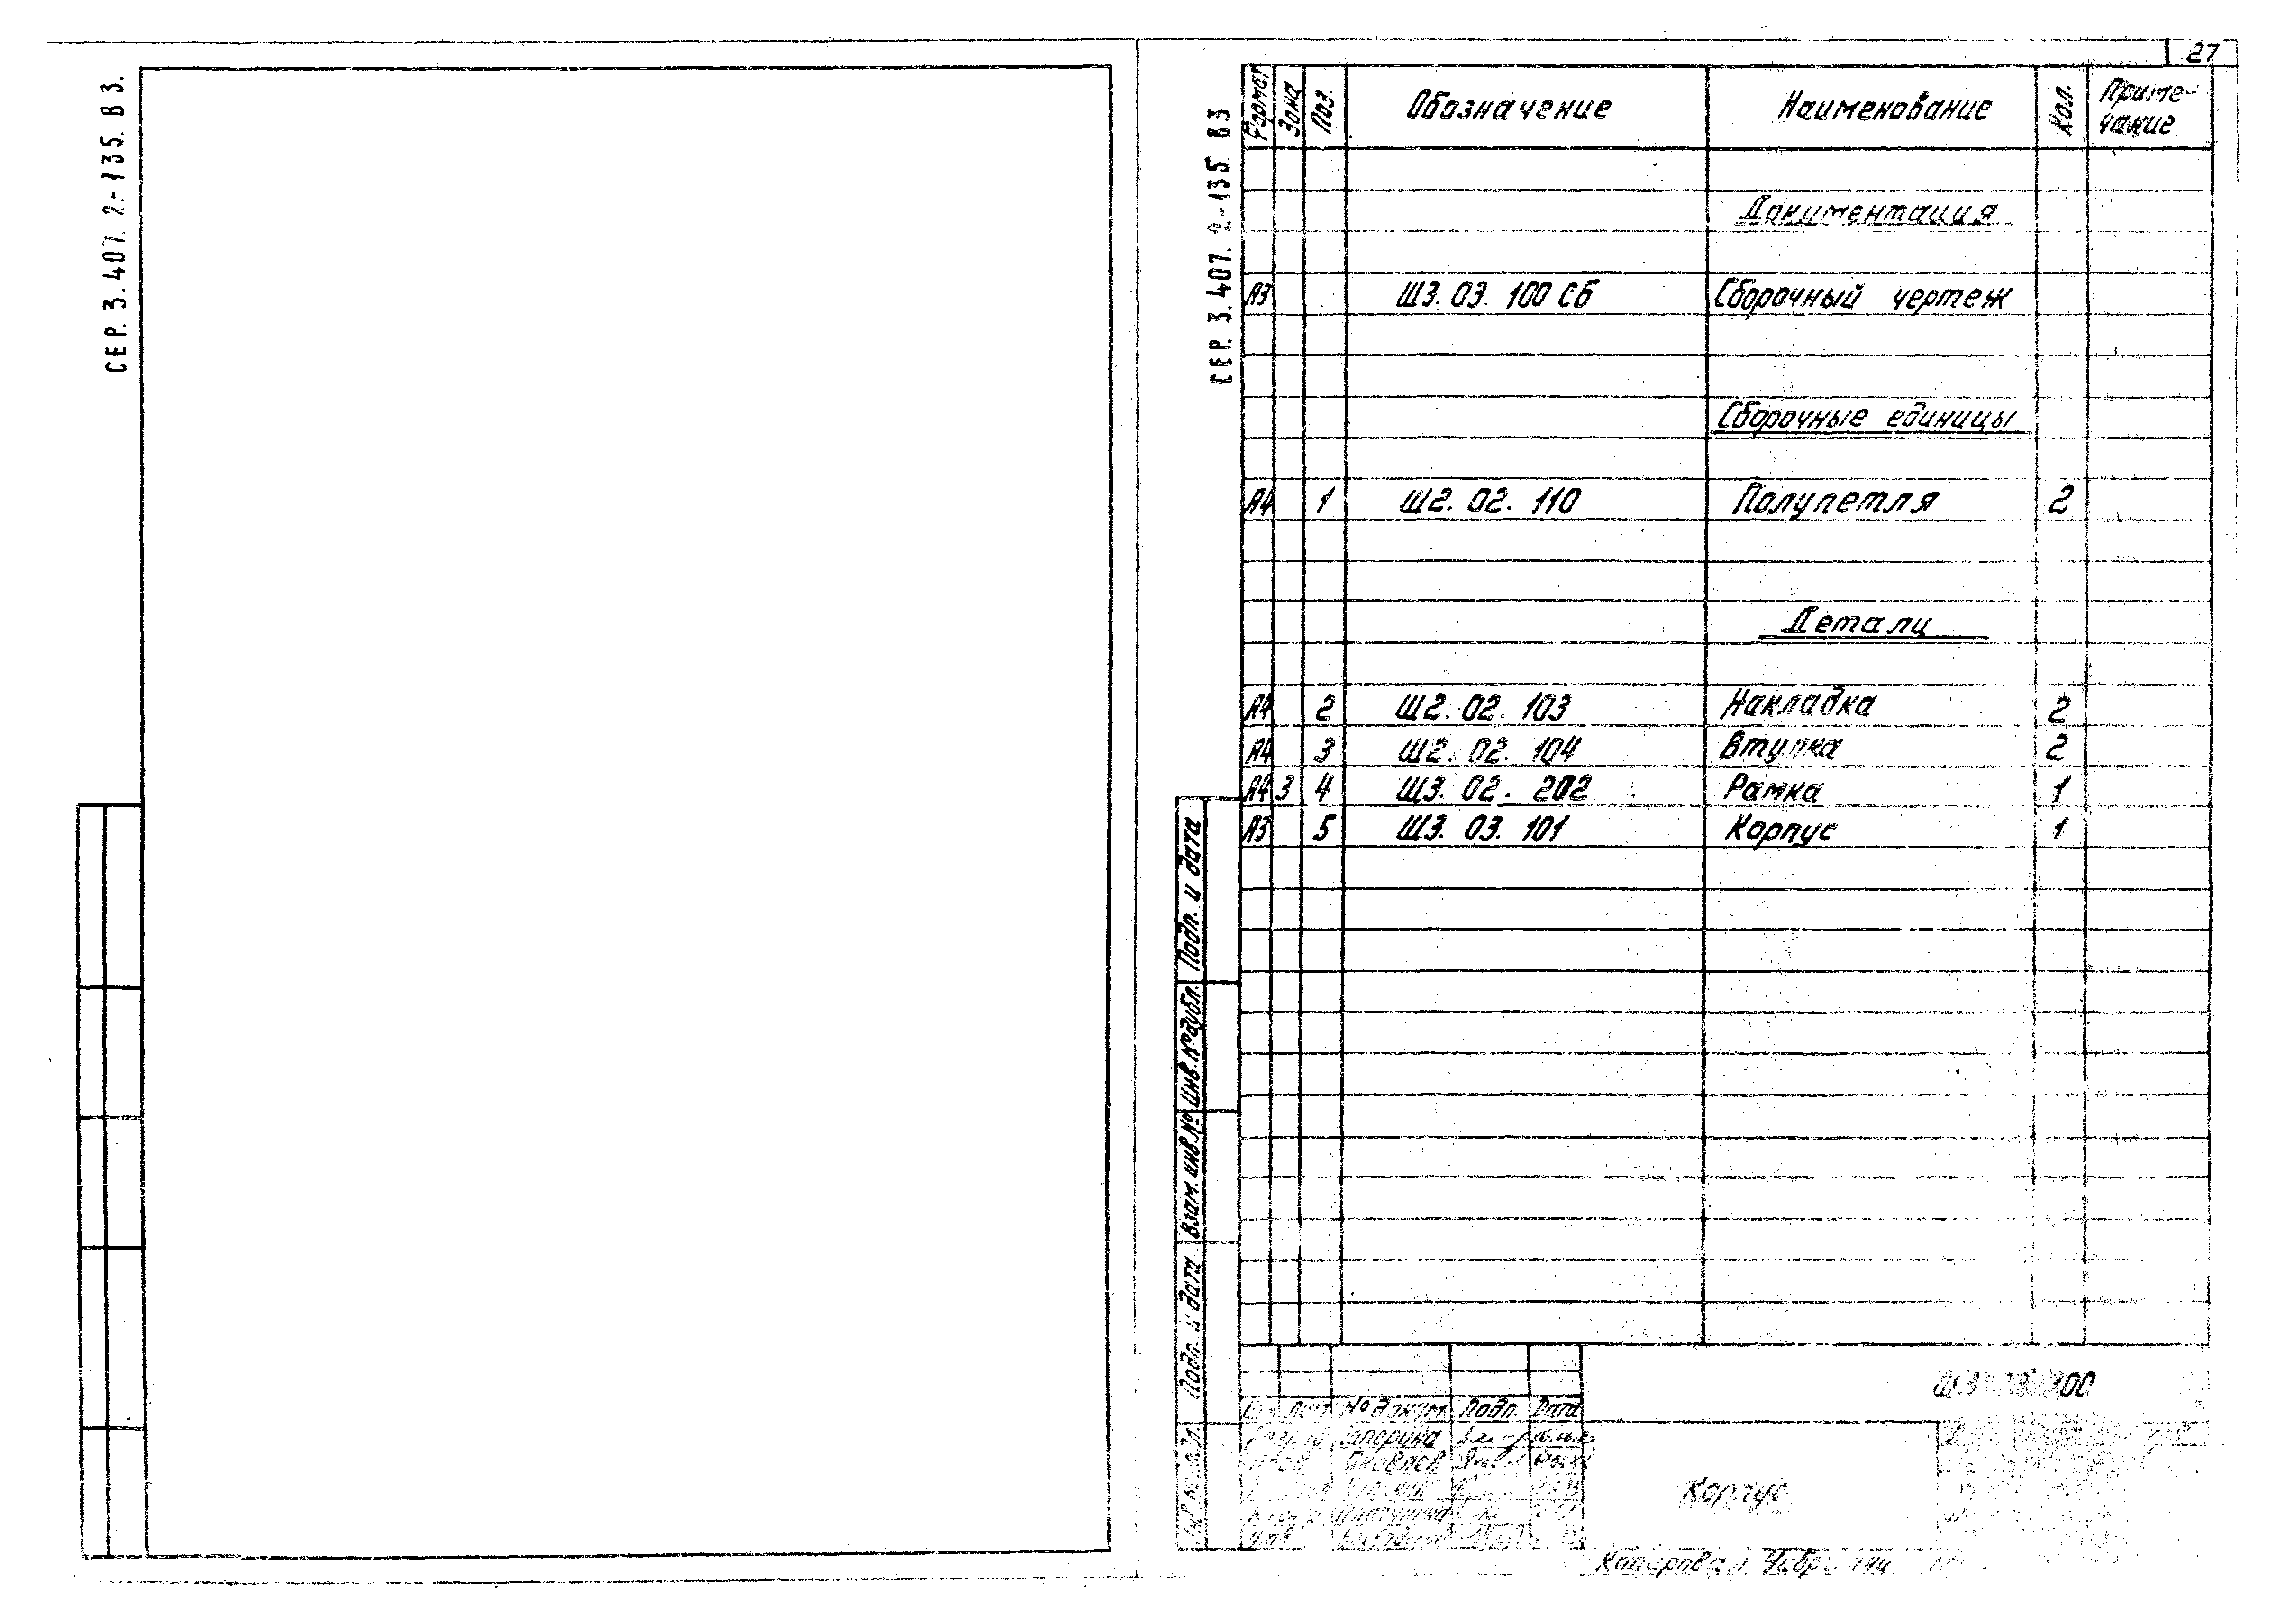 27
СЕР. 3. 407. 2-135. В 3.
СЕР. 3. 407. 2-135. В 3
Формат Зона Поз. Обозначение Наименование Кол. Приме-
чание
Документация
А3 Ш3. 03. 100 СБ Сборочный чертеж
Сборочные единицы
А4 1 Ш2. 02. 110 Полупетля 2
Детали
А4 2 Ш2. 02. 103 Накладка 2
А4 3 Ш2. 02. 104 Втулка 2
А4 3 4 Ш3. 02. 202 Рамка 1
А3 5 Ш3. 03. 101 Корпус 1
Подп. и дата
Инв. № дубл.
Взам. инв. №
Подп. и дата
№ докум. Подп. Дата
Яковлев
Корпус